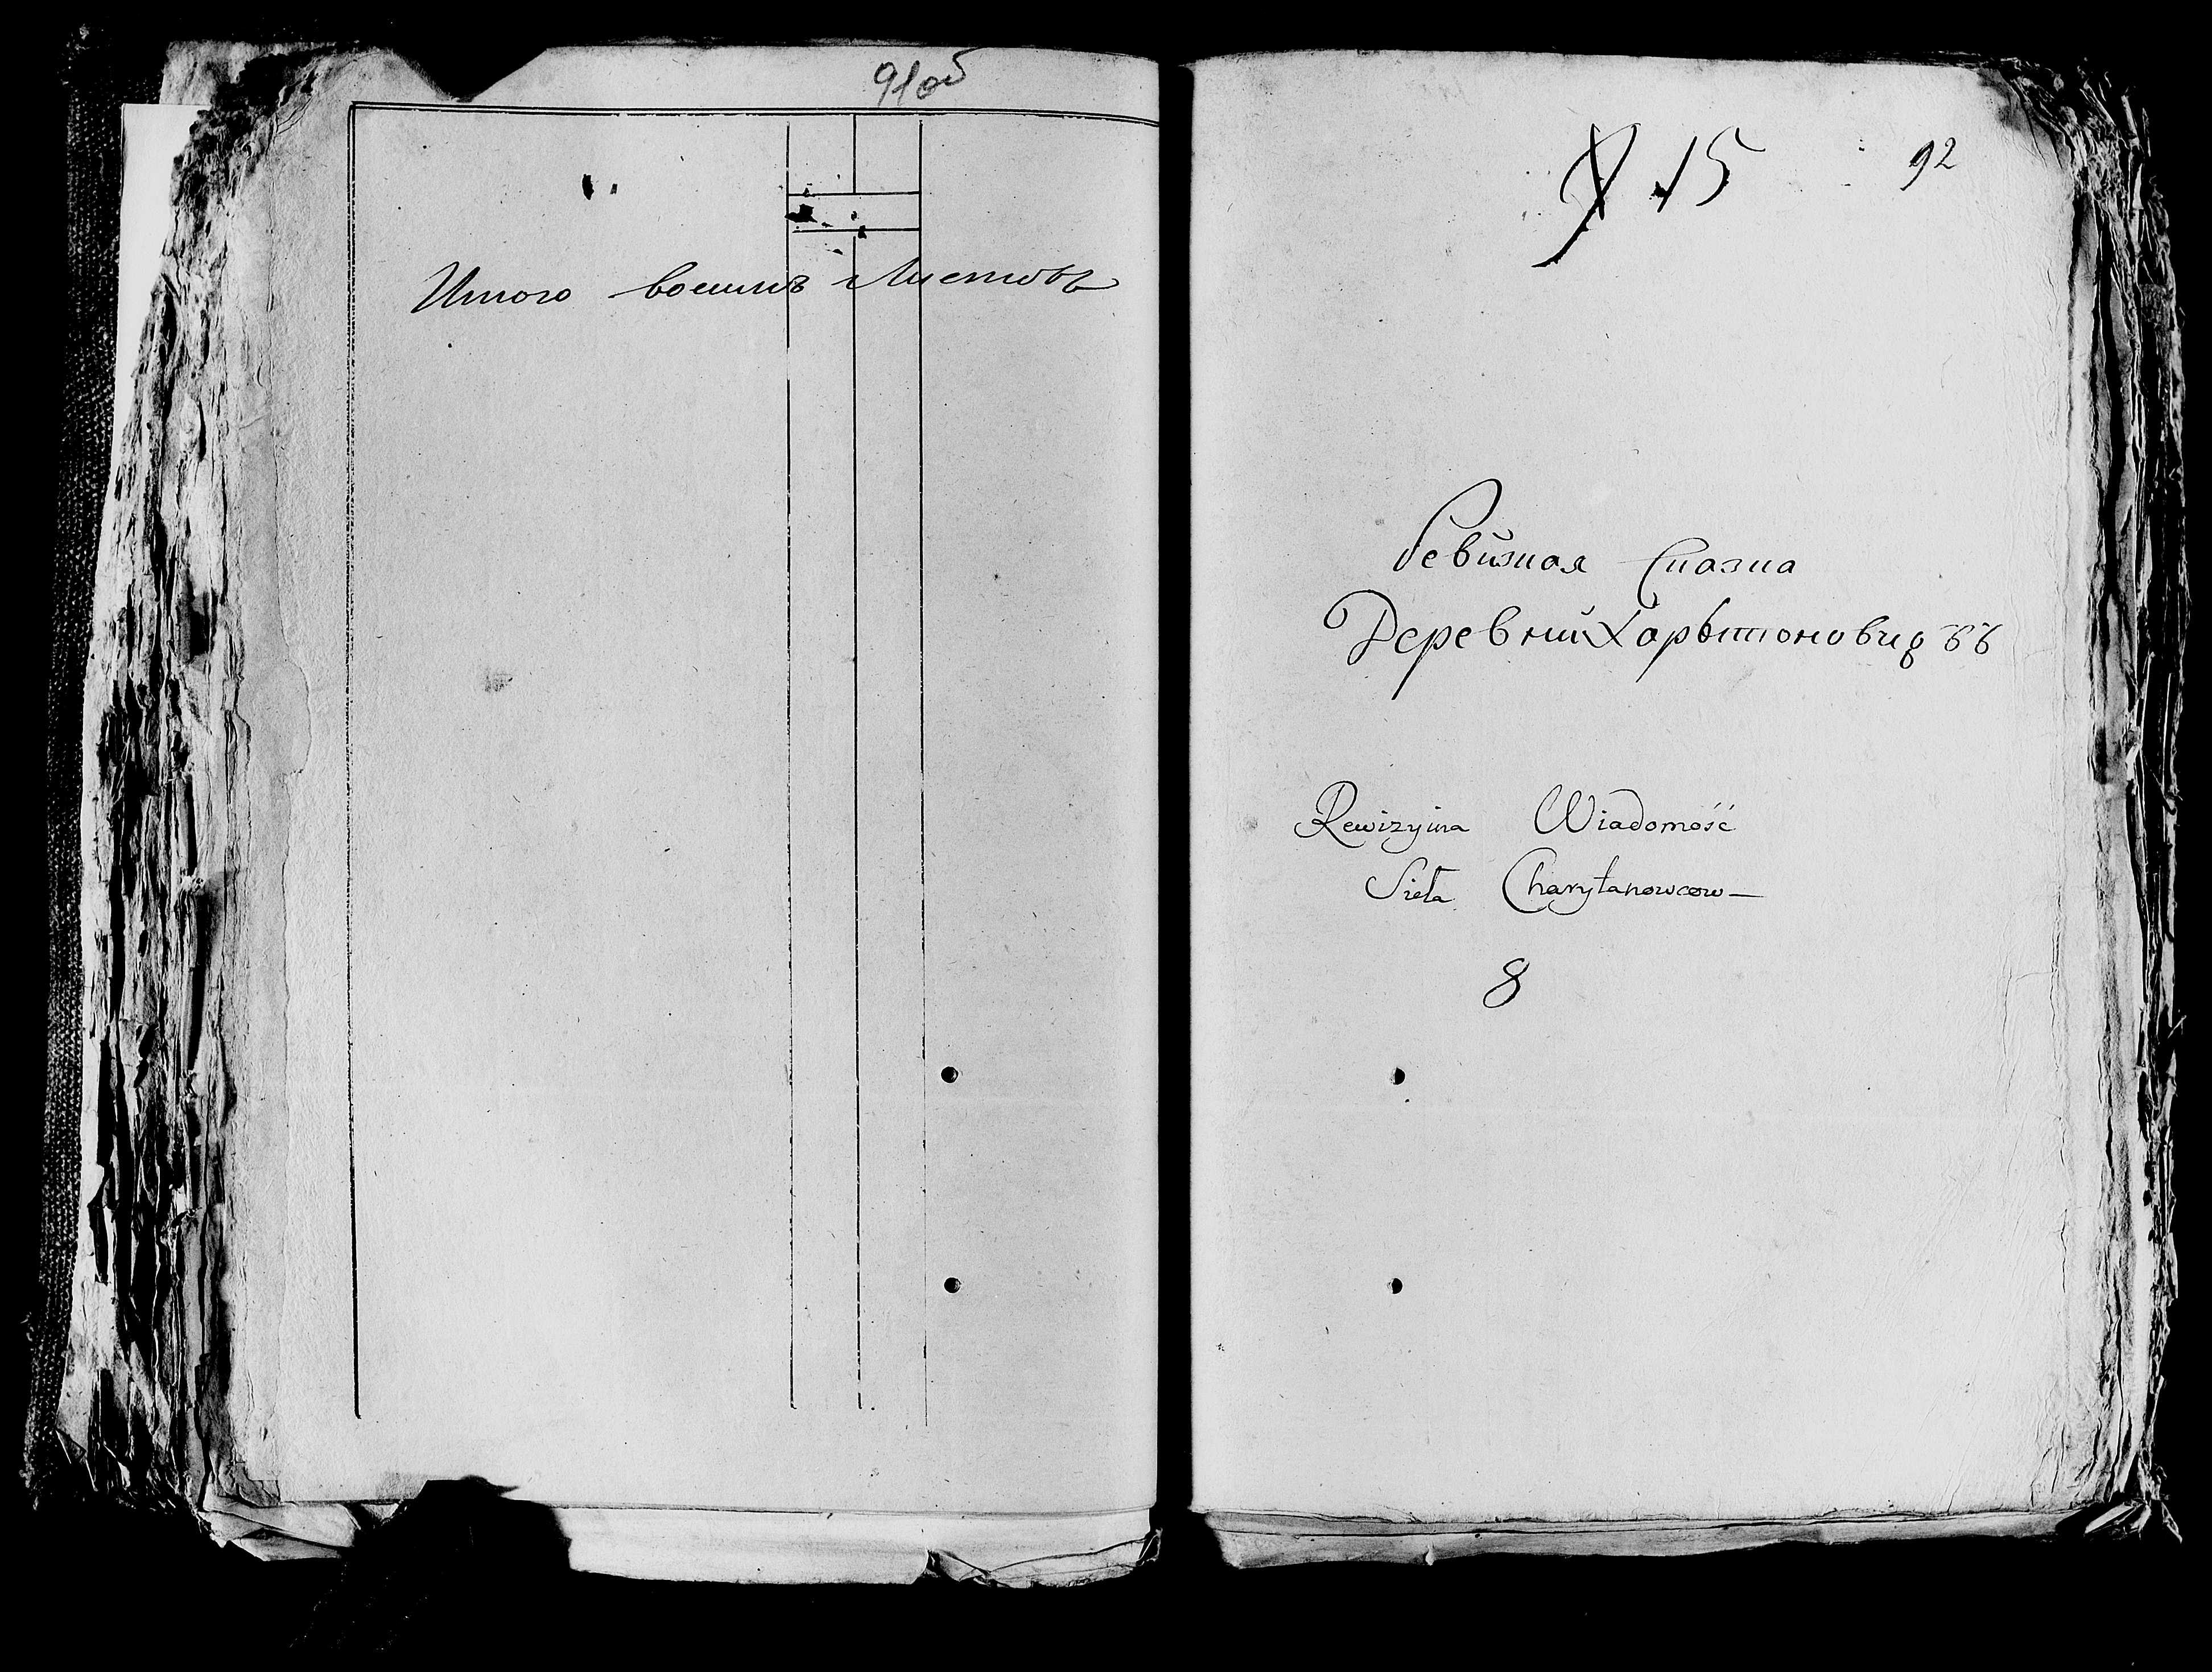 91об
Итого восимъ Листовъ
15
92
Ревизная Сказка
Деревни Харытоновцовъ
Rewizyina Wiadomość
Sieła Charytanowcow—
8